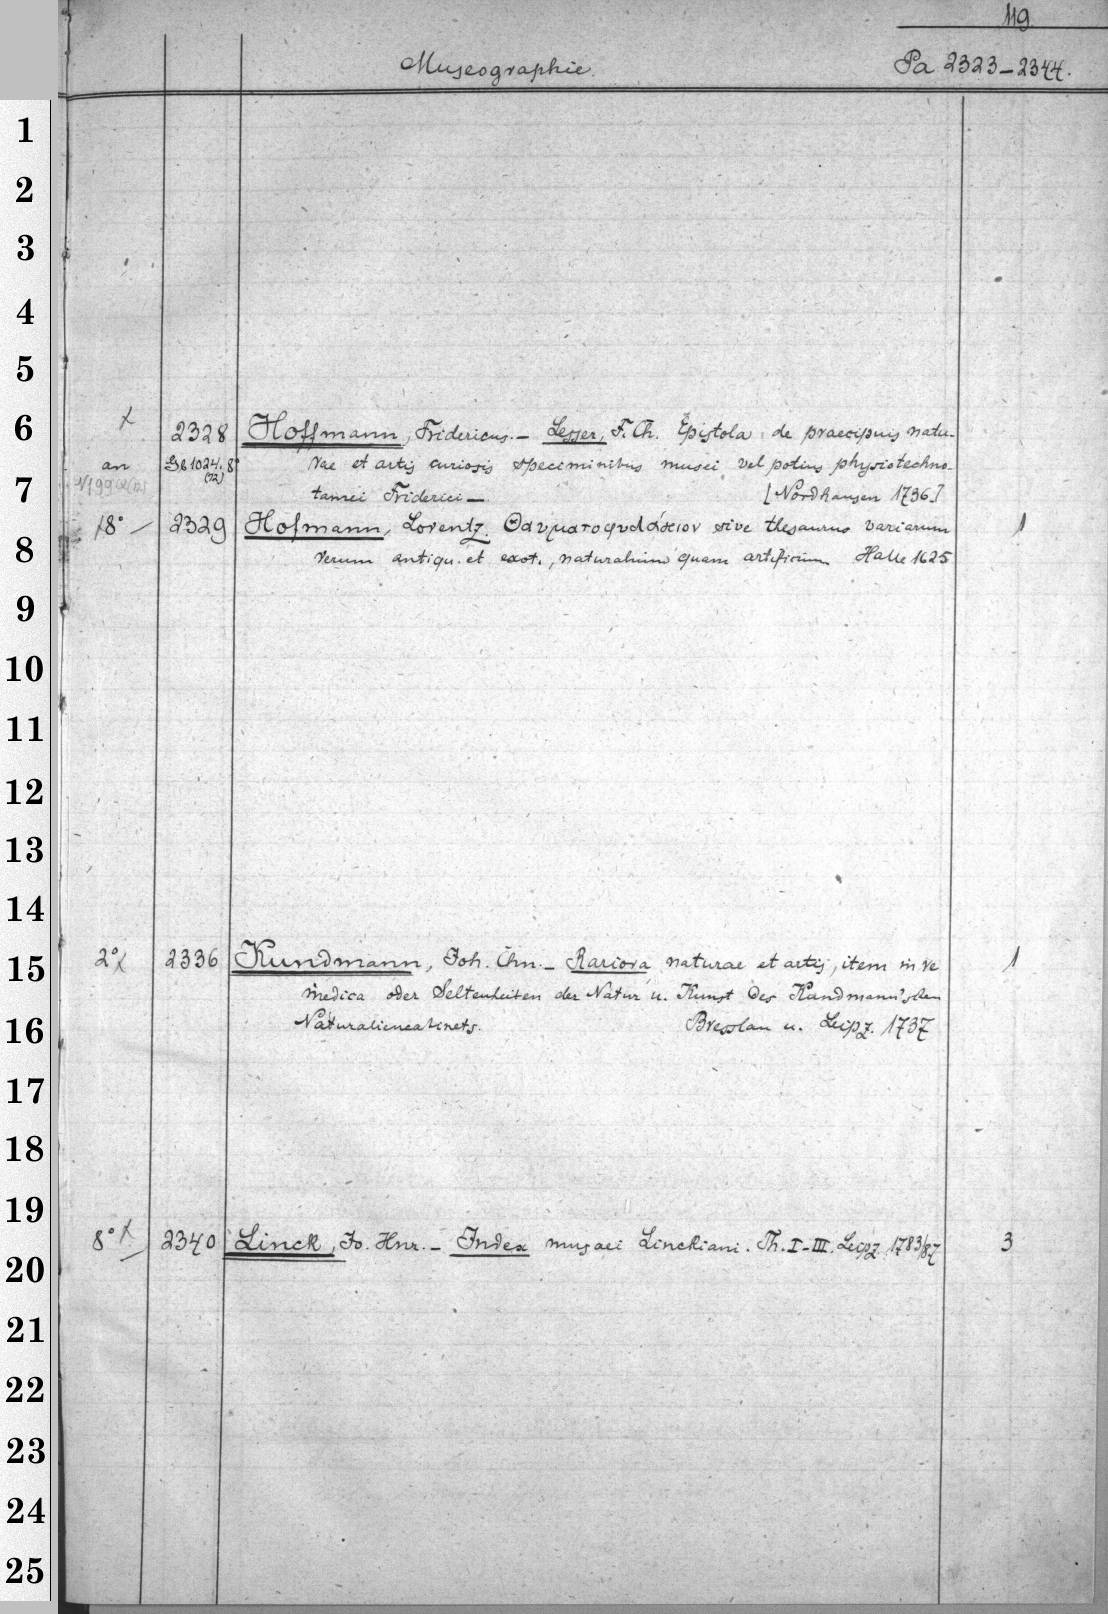 119.
Museographie. Pa 2323-2344.
1
2
3
4
5
6
7
8
9
10
11
12
13
14
15
16
17
18
19
20
21
22
23
24
25
x 2328 Hoffmann, Fridericus. - Lesser, F. Ch. Epistola de praecipuis natu-
an 1024. 8° rae et artis curiosis speciminibus musei vel potius physiotechno-
tamei Friderici - [Nordhausen 1736.]
8° - 2329 Hofmann, Lorentz. Θαυματοφυλάκιον sive thesaurus variarum 1
rerum antiqu. et exot., naturalium quam artificium Halle 1625
2° x 2336 Kundmann, Joh. Chn. - Rariora naturae et artis, item in re 1
medica oder Seltenheiten der Natur u. Kunst des Kandmann'schen
Naturaliencabinets. Bresslau u. Leipz. 1737
8° x 2340 Linck, Jo. Hnr. - Index musaei Linckiani. Th. I-III. Leipz. 1783/87 3